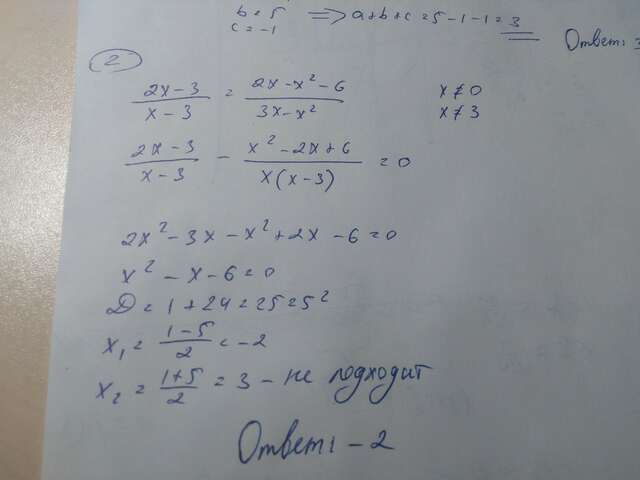 b = 5 ⟹ a+b+c = 5-1-1 = 3
c = -1
Ответ: 3
2
(2x-3)/(x-3) = (2x-x²-6)/(3x-x²) x ≠ 0
x ≠ 3
(2x-3)/(x-3) - (x²-2x+6)/(x(x-3)) = 0
2x²-3x-x²+2x-6=0
x²-x-6=0
D = 1+24=25=5²
x₁ = (1-5)/2 = -2
x₂ = (1+5)/2 = 3 - не подходит
Ответ: -2